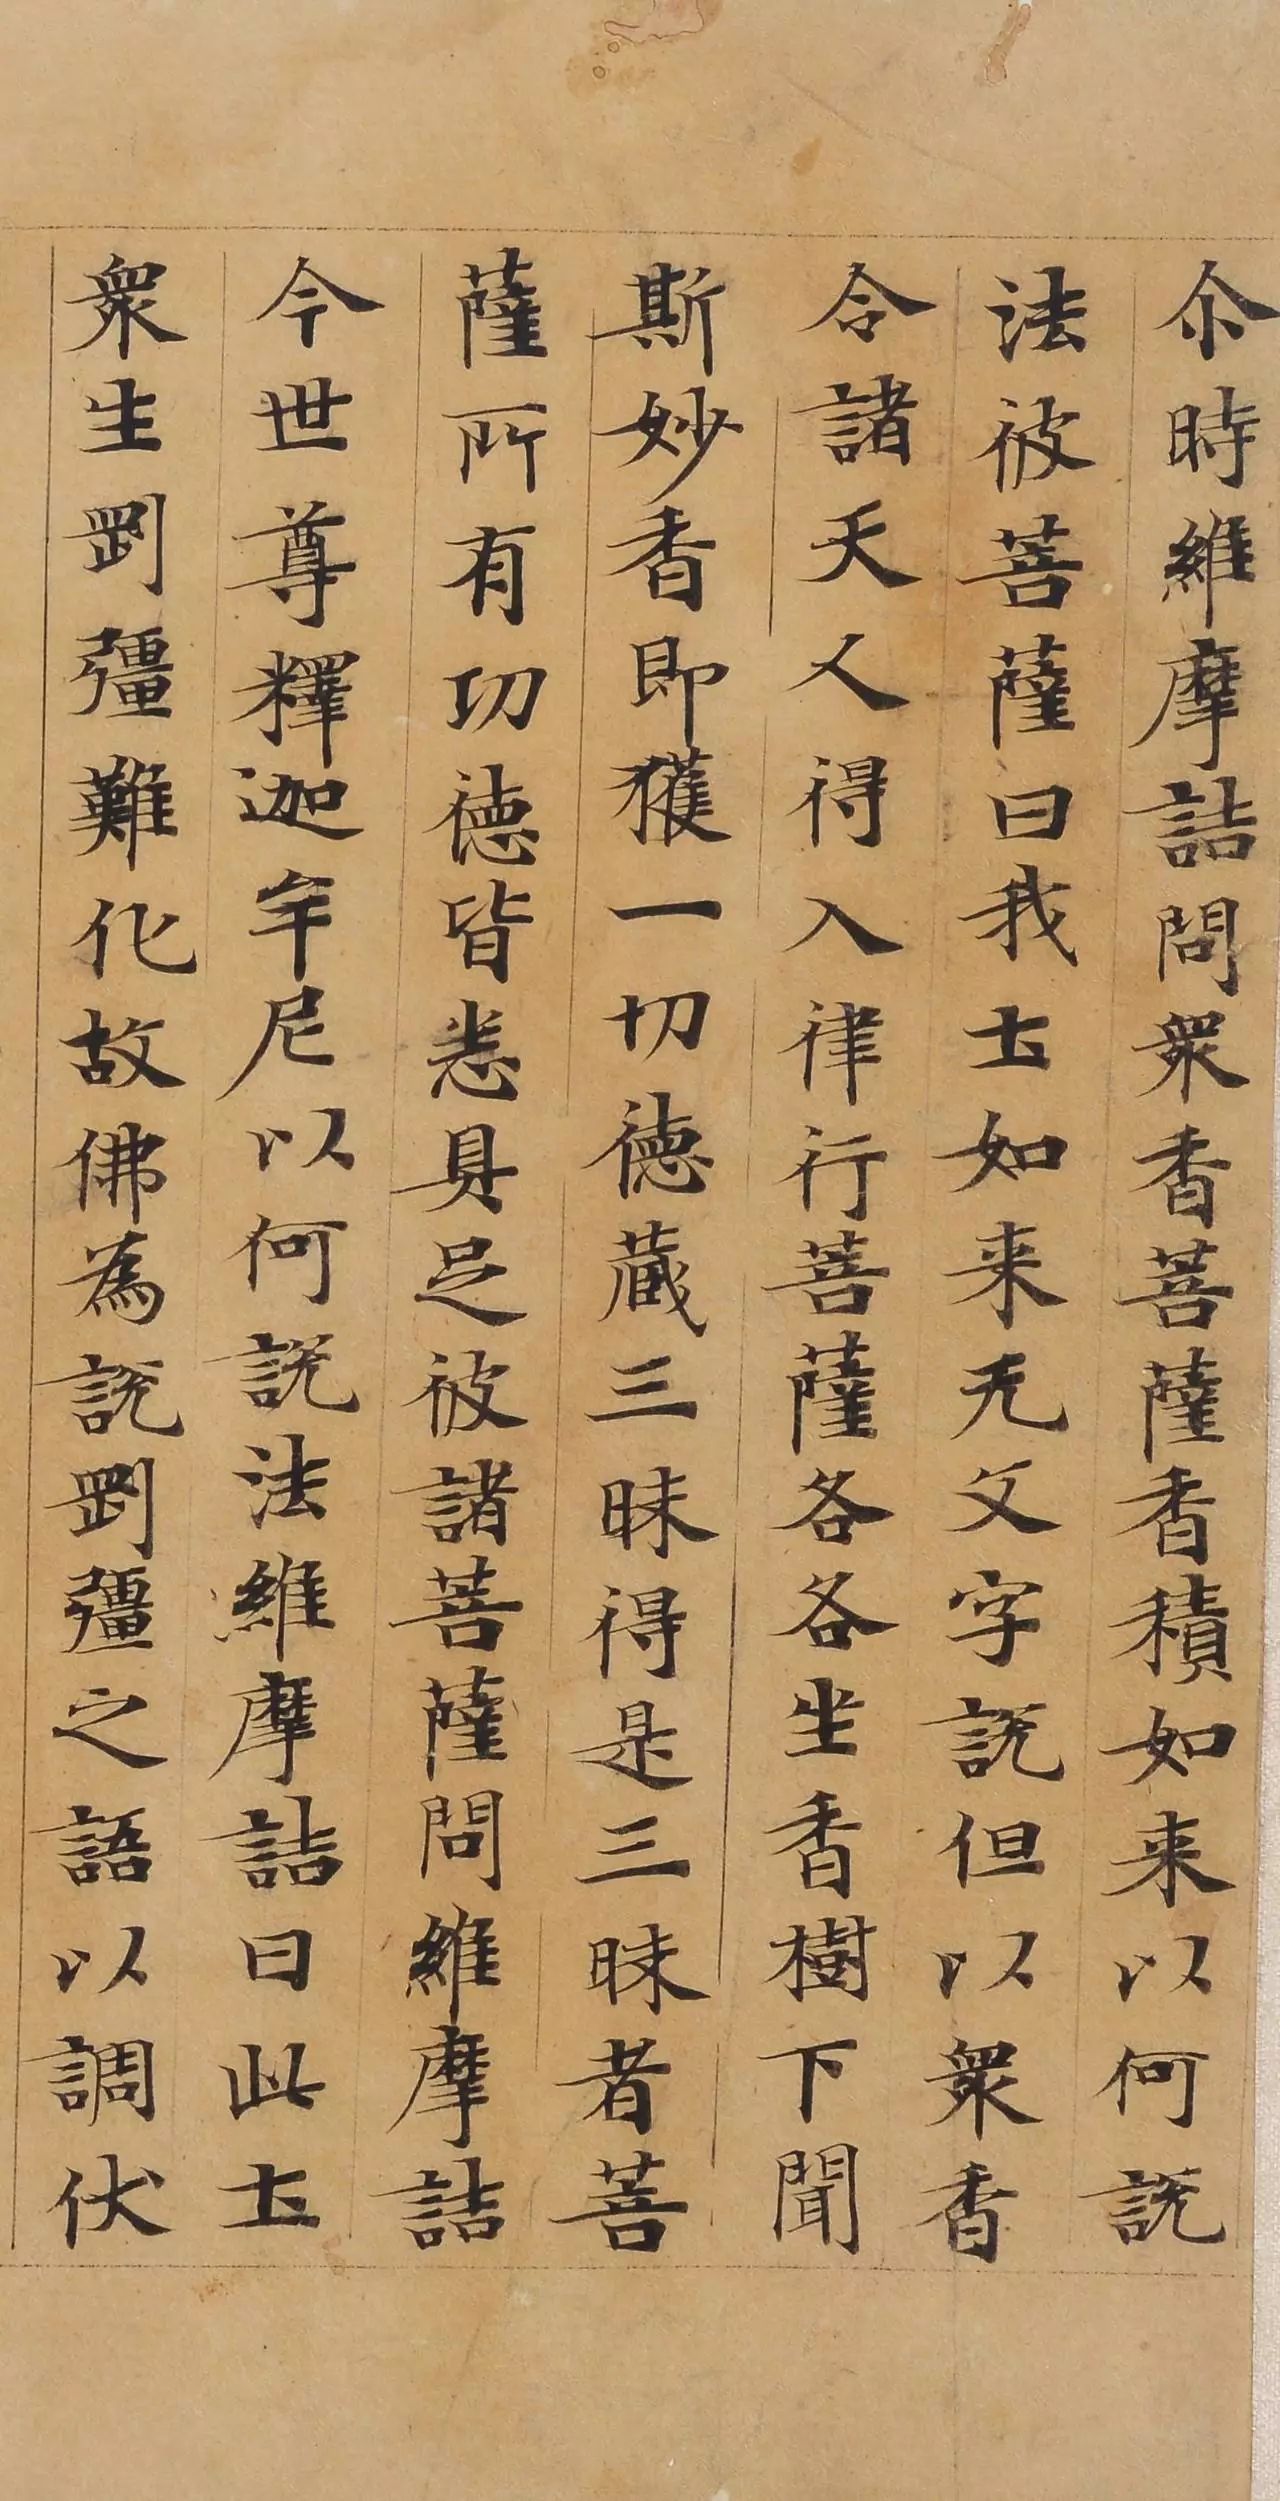 尒時維摩詰問衆香菩薩香積如来以何說
法彼菩薩曰我土如来无文字說但以衆香
令諸天人得入律行菩薩各各坐香樹下聞
斯妙香即獲一切德藏三昧得是三昧者菩
薩所有功德皆悉具足彼諸菩薩問維摩詰
今世尊釋迦牟尼以何說法維摩詰曰此土
衆生剛彊難化故佛為說剛彊之語以調伏